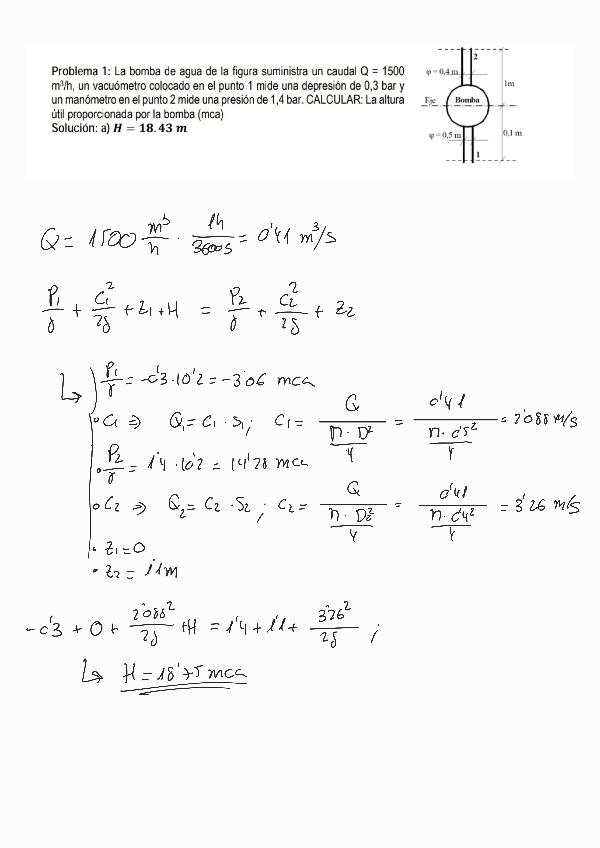 Problema 1: La bomba de agua de la figura suministra un caudal Q = 1500
m³/h, un vacuómetro colocado en el punto 1 mide una depresión de 0,3 bar y
un manómetro en el punto 2 mide una presión de 1,4 bar. CALCULAR: La altura
útil proporcionada por la bomba (mca)
Solución: a) H = 18.43 m
2
φ = 0,4 m
1m
Eje
Bomba
φ = 0,5 m
0,1 m
1
Q = 1500 m³/h · 1h/3600s = 0'41 m³/s
P₁/γ + C₁²/2g + z₁ + H = P₂/γ + C₂²/2g + z₂
↳ P₁/γ = -0'3·10'2 = -3'06 mca
· C₁ ⇒ Q₁ = C₁ · S₁; C₁ = Q/(π·D²/4) = 0'41/(π·0'5²/4) = 2'088 m/s
· P₂/γ = 1'4 · 10'2 = 14'28 mca
· C₂ ⇒ Q₂ = C₂ · S₂; C₂ = Q/(π·D₂²/4) = 0'41/(π·0'4²/4) = 3'26 m/s
· z₁ = 0
· z₂ = 1'1m
-0'3 + 0 + 2'088²/2g + H = 1'4 + 1'1 + 3'26²/2g ;
↳ H = 18'75 mca